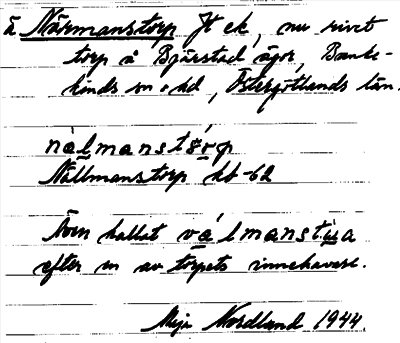 å Närmanstorp Jt ek, nu rivet
torp å Bjärstad ägor, Banke-
kinds sn o hd, Östergötlands län.
nàlmanstǒrp
Nällmanstorp kb -62
Även kallatválmanstùa
efter en av torpets innehavare.
Maja Nordland 1944.